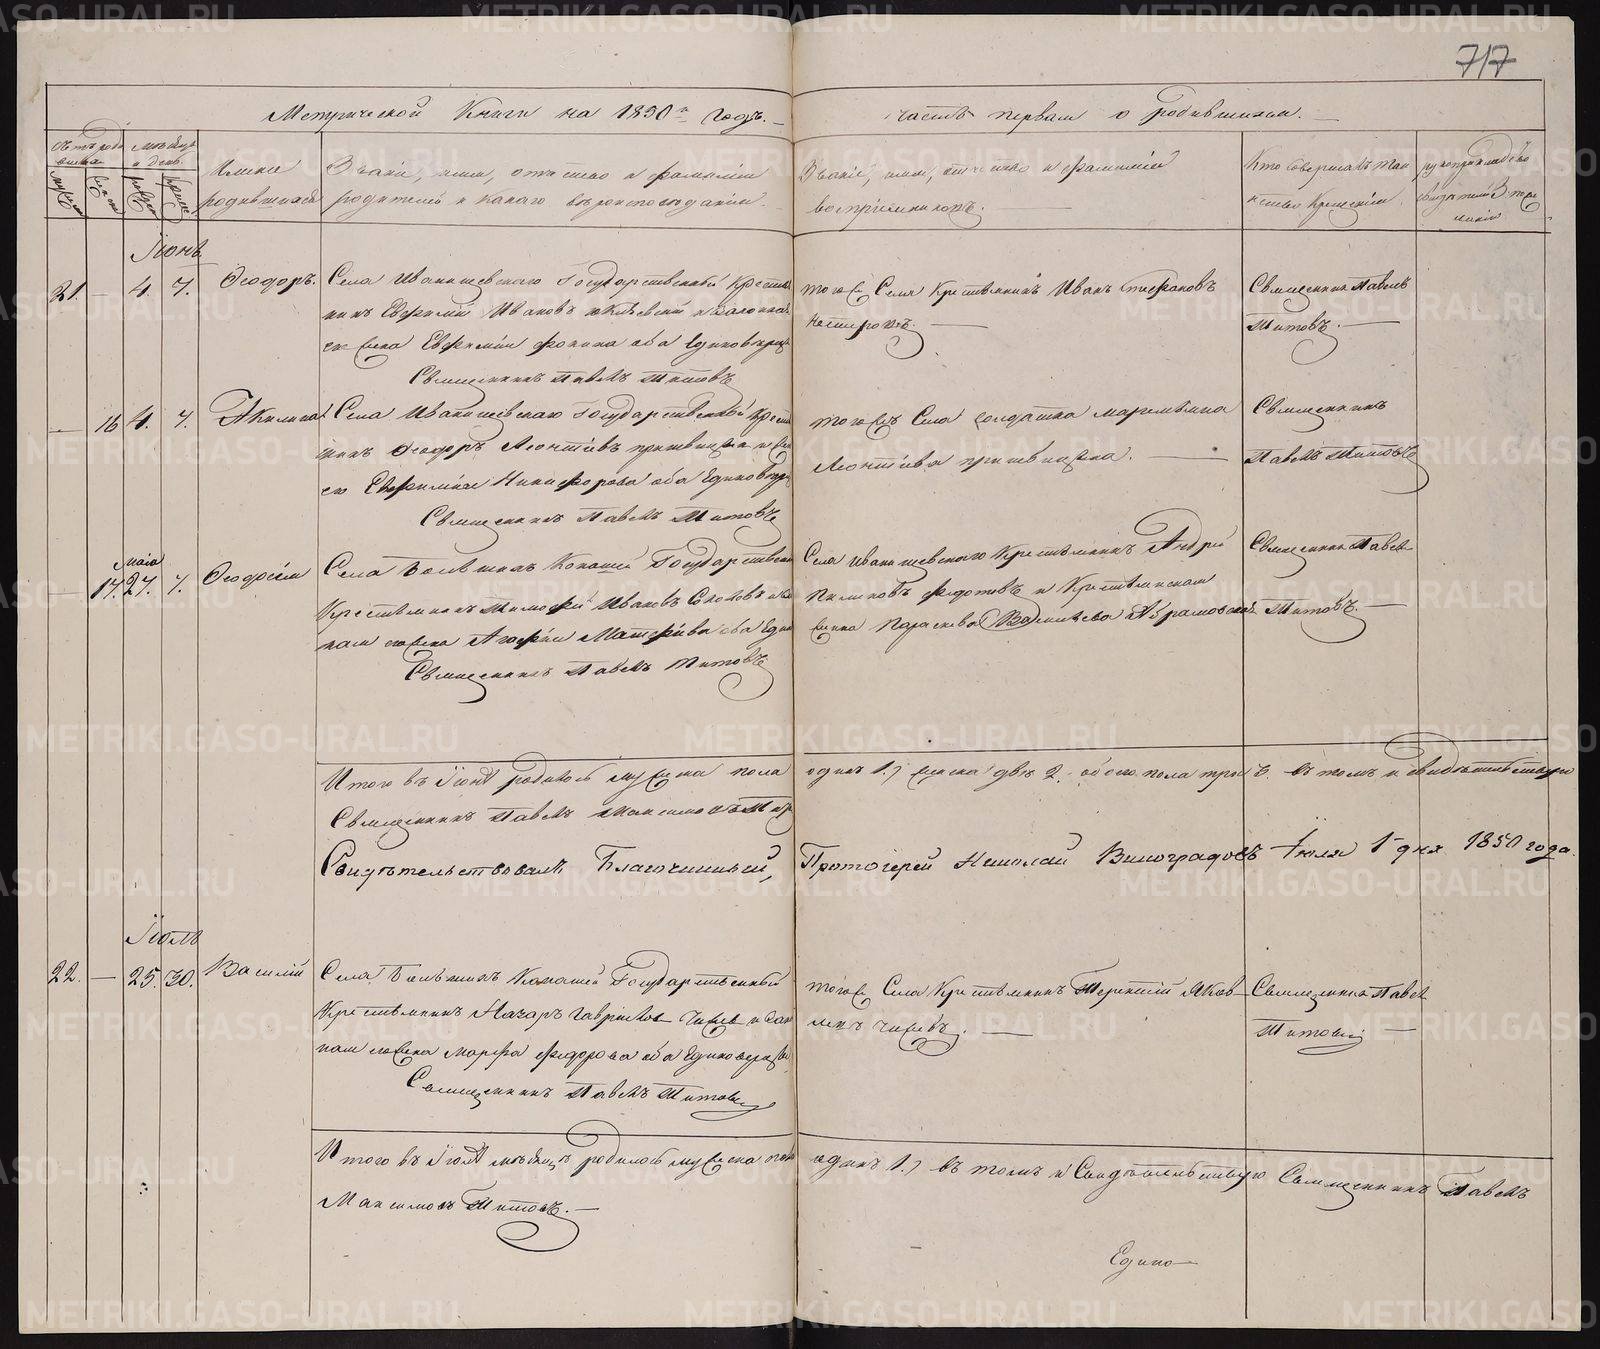 717
Метрической Книги на 1850й годъ. часть первая о родившихся.
Имена
родившихся
Званіе, имя, отчество и фамилія
родителей и какаго вѣроисповѣданія.
Званіе, имя, отчество и фамилія
воспріемниковъ.
Кто совершалъ таи
нство Крещенія
Іюнь
21. — 4. 7. Ѳеодоръ.
Села Иванищевскаго Государственный Крестья
нинъ Евфимій Ивановъ и законна
я жена Евфимія Фокина оба Единоверцы
Священникъ Павелъ Титовъ
того же Села Крестьянинъ Иванъ Стефановъ
Священникъ Павелъ
Титовъ.
— 16 4. 7. Акилина
Села Иванищевскаго Государственной Крестья
нинъ Ѳеодоръ Леонтіевъ и же
на Евфимія Никифорова оба Единоверцы
Священникъ Павелъ Титовъ
того же Села солдатка
Леонтіева
Священникъ
Павелъ Титовъ
— 17. Маія 27. 7. Ѳеодосія
Села Большихъ Конашей Государствен
Крестьянинъ Тимофей Ивановъ Соколовъ и зако
нная жена Агафія Матфіева оба Един
Священникъ Павелъ Титовъ
Села Иванищевскаго Крестьянинъ Андрей
Федотовъ и Крестьянская
женка Параскева Васильева Абрамовская
Священникъ Павелъ
Титовъ.
Итого въ Іюнѣ родилось мужеска пола одинъ 1.) женска двѣ 2. обоего пола три 3. въ томъ и свидѣтельствую
Священникъ Павелъ Максимовъ Титовъ
Свидѣтельствовалъ Благочинный, Протоіерей Николай Виноградовъ Іюля 15 дня 1850 года.
Іюль
22. — 25. 30. Василій
Села Большихъ Конашей Государственный
Крестьянинъ Назаръ Гавриловъ и зако
нная жена Марфа Федорова оба Единоверцы
Священникъ Павелъ Титовъ
того же Села Крестьянинъ Терентій Яков
левъ
Священникъ Павелъ
Титовъ
Итого въ Іюлѣ мѣсяцѣ родилось мужеска пола одинъ 1.) въ томъ и Свидѣтельствую Священникъ Павелъ
Максимовъ Титовъ.
Едино
METRIKI.GASO-URAL.RU